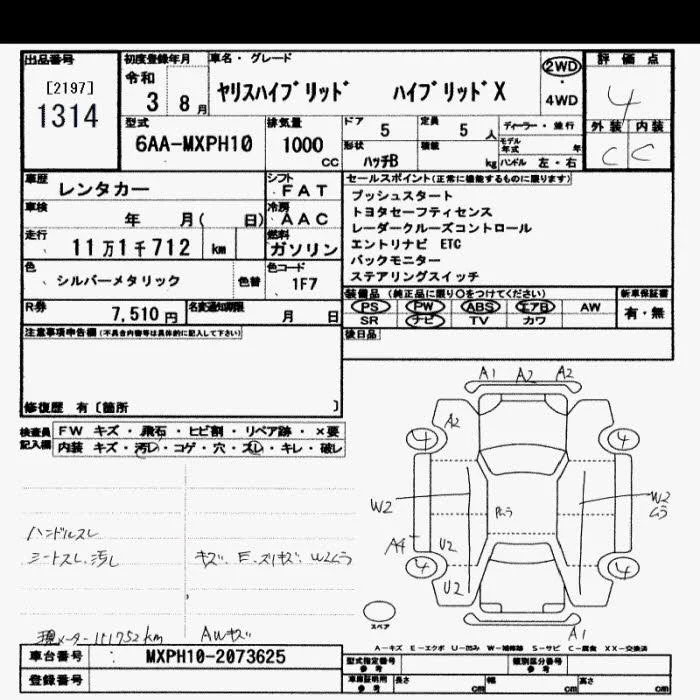 出品番号 初度登録年月 車名・グレード 評価点
[2197]
1314
令和 3 8月 ヤリスハイブリッド ハイブリッドX 2WD 4WD 4
型式 排気量 ドア 定員 ディーラー・並行 外装 内装
6AA-MXPH10 1000 cc 5 5人 モデル年式 年 C C
形状 ハッチB 積載 kg ハンドル 左・右
車歴 レンタカー シフト FAT セールスポイント(正常に機能するものに限ります)
車検 年 月( 日) 冷房 AAC
走行 11万1千712 km 燃料 ガソリン
プッシュスタート
トヨタセーフティセンス
レーダークルーズコントロール
エントリナビ ETC
バックモニター
ステアリングスイッチ
色 シルバーメタリック 色替 色コード 1F7
装備品(純正品に限り○をつけてください) 新車保証書
R券 7,510円 名変通知期限 月 日
PS PW ABS エアB AW 有・無
SR ナビ TV カワ
注意事項申告欄(不具合内容等は具体的に記入して下さい) 後日品
修復歴 有〔箇所 〕
検査員記入欄 FW キズ・飛石・ヒビ割・リペア跡・×要
内装 キズ・汚レ・コゲ・穴・スレ・キレ・破レ
A1 A2 A2
A2
4 4
W2 ムラ W2ムラ
A4 U2
4 4
U2
ハンドルスレ
シートスレ、汚レ キズ、E、スリキズ、W2ムラ
現メーター 111752km AWキズ
スペア A1
A-キズ E-エクボ U-凹み W-補修跡 S-サビ C-腐食 XX-交換済
車台番号 MXPH10-2073625 型式指定番号 参考 類別区分番号 参考
登録番号 車庫証明用 参考 長さ cm 幅 cm 高さ cm